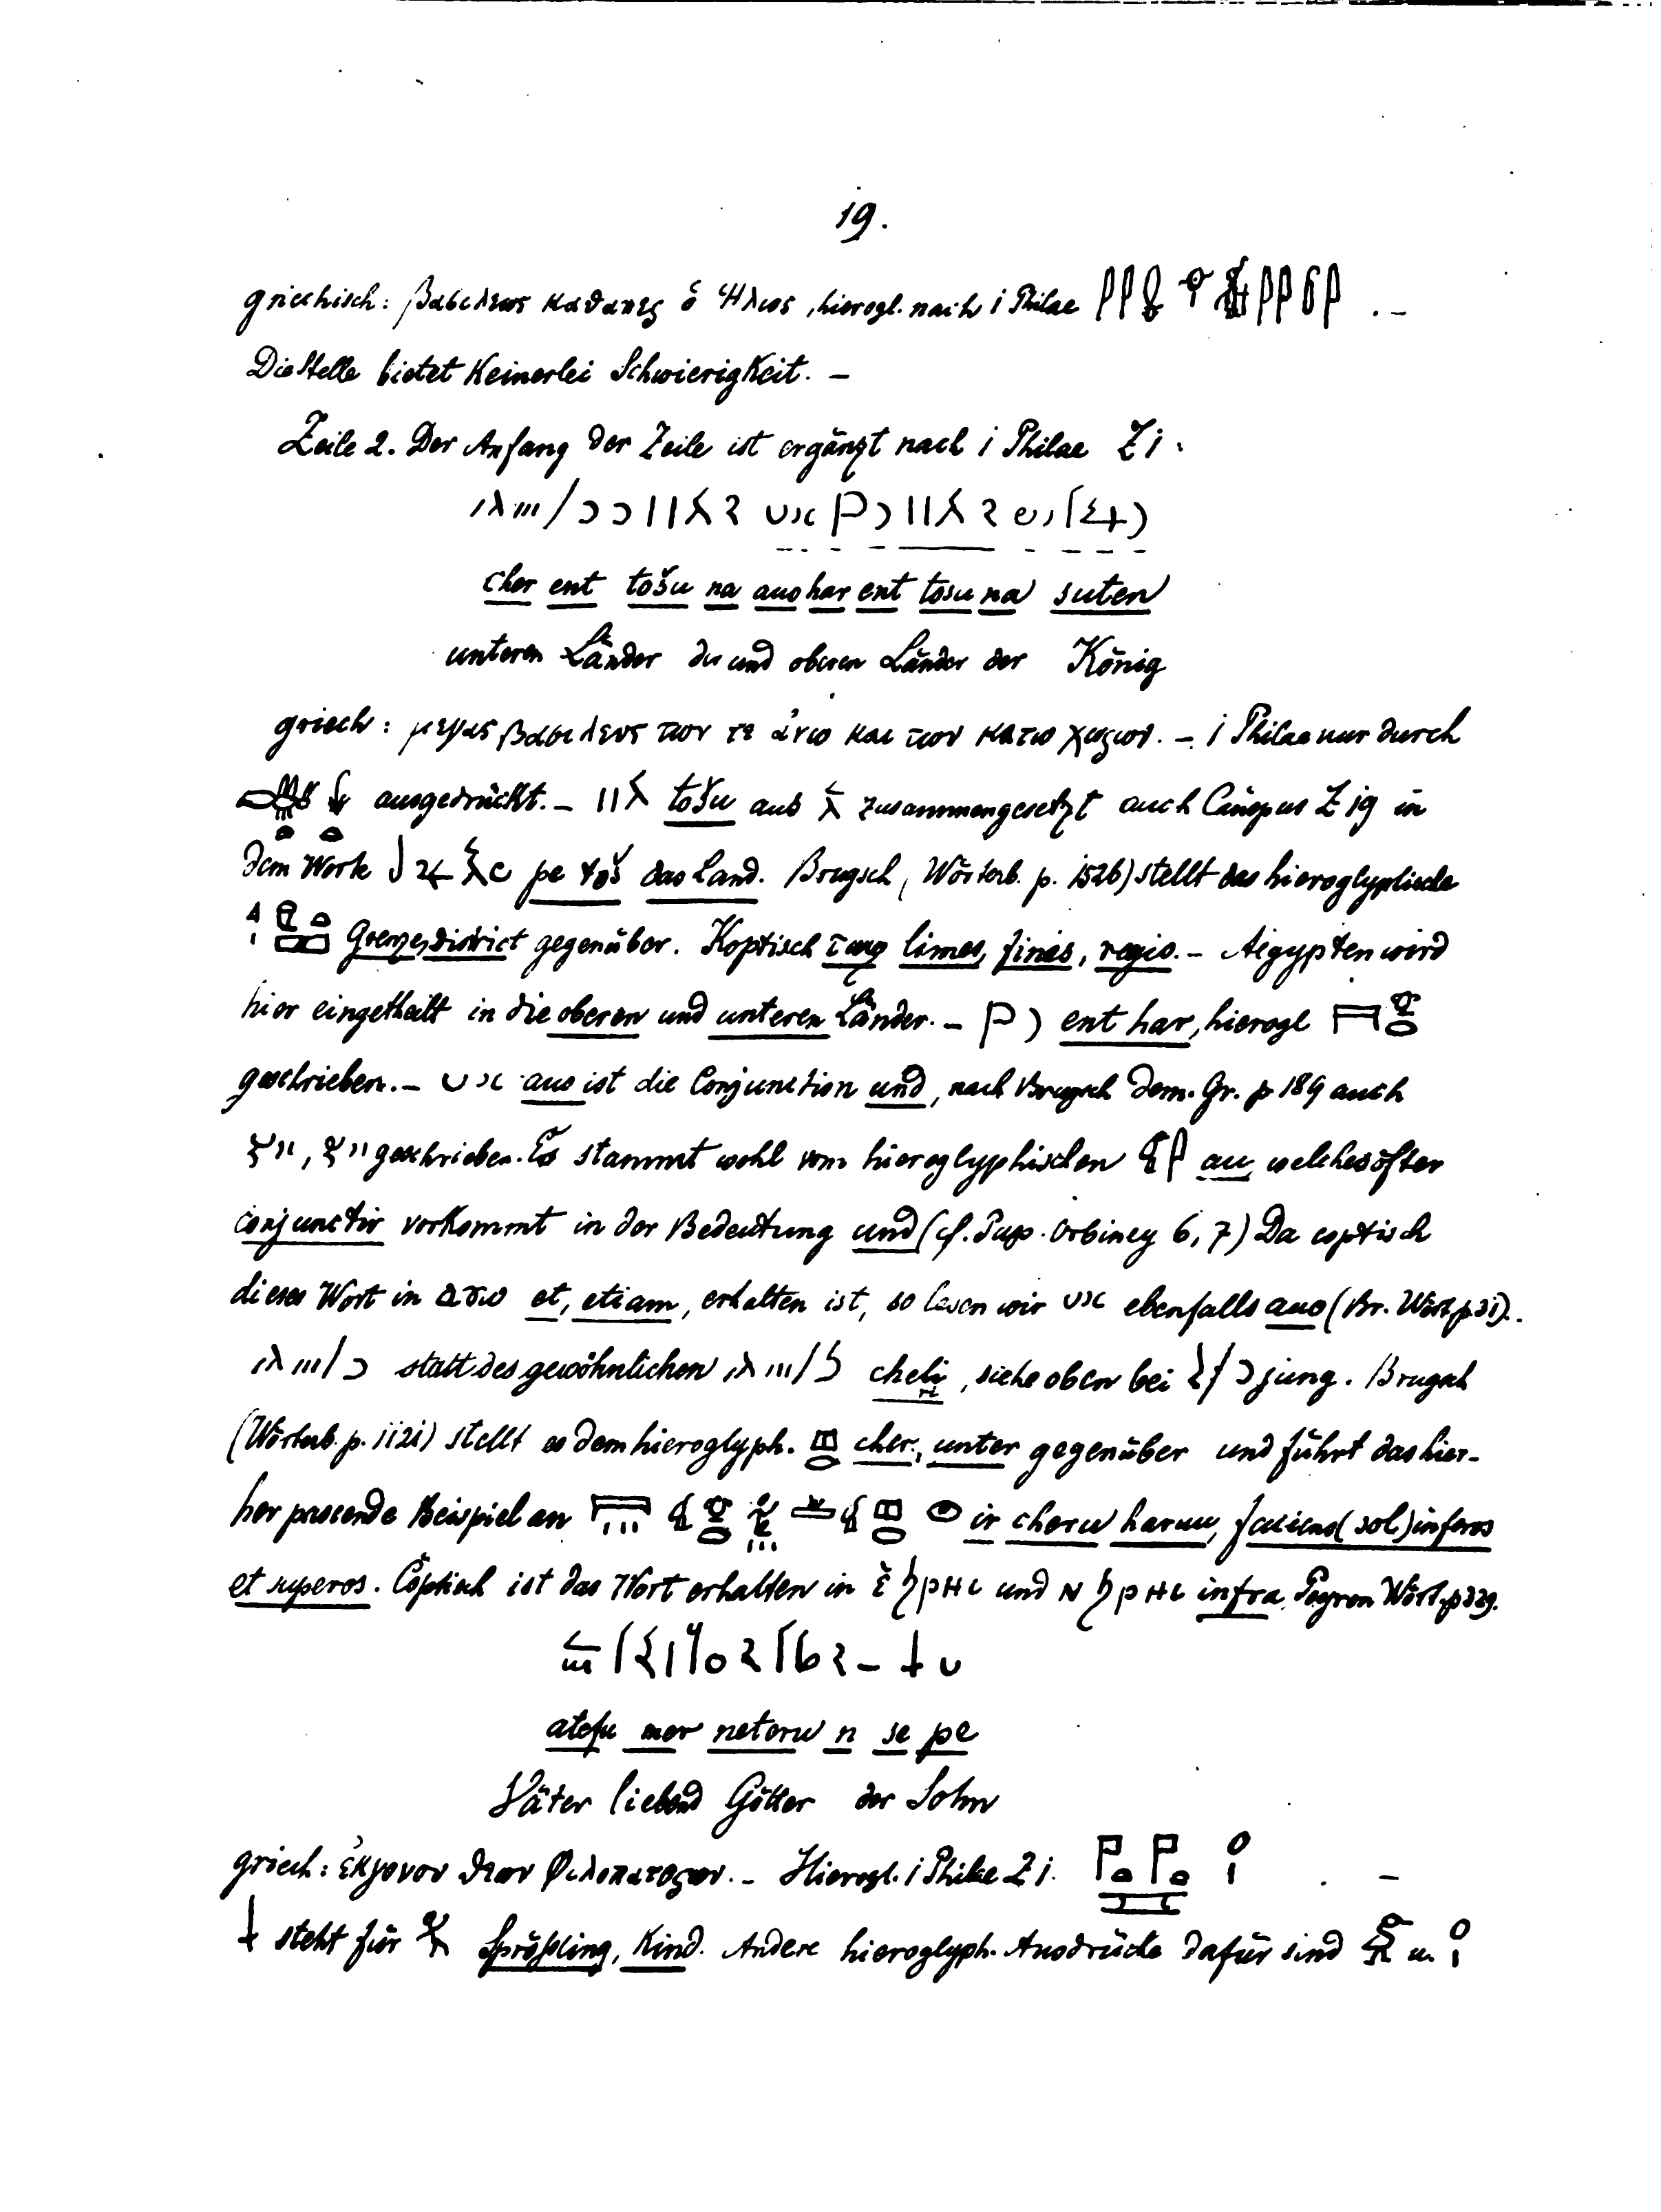 19.
griechisch: βασιλεως καθαπες ὁ Ἡλιος, hierogl. nach i Philae . –
Die Stelle bietet Keinerlei Schwierigkeit. –
Zeile 2. Der Anfang der Zeile ist ergänzt nach i Philae Z i.
cher ent tošu na auo har ent tosu na suten
unteren Länder der und oberen Länder der König
griech: μεγας βασιλευς των τε ἀνω και των κατω χωρων. – i Philae nur durch
ausgedrückt. – tošu aus zusammengesetzt auch Canopus Z 19 in
dem Worte pe toš das Land. Brugsch, Wörterb. p. 1526) stellt das hieroglyphische
Grenze, District gegenüber. Koptisch limes, finis, regio. – Aigypten wird
hier eingetheilt in die oberen und unteren Länder. – ent har, hierogl
geschrieben. – auo ist die Conjunction und, nach Brugsch Dem. Gr. p 189 auch
geschrieben. Es stammt wohl vom hieroglyphischen au, welches öfter
conjunctiv vorkommt in der Bedeutung und (cf. Pap. Orbiney 6, 7) Da coptisch
dieses Wort in ⲁⲩⲱ et, etiam, erhalten ist, so lesen wir ebenfalls auo (Br. Wört. p 31).
statt des gewöhnlichen cheli, siehe oben bei jung. Brugsch
(Wörterb. p. 1121) stellt es dem hieroglyph. cher, unter gegenüber und führt das hier-
her passende Beispiel an ir cheru haruu, faciens (sol) inferos
et superos. Coptisch ist das Wort erhalten in ⲉ̀ϧⲣⲏⲓ und ⲛϧⲣⲏⲓ infra. Peyron Wört. p 329.
atefu mer neteru n se pe
Väter liebend Götter der Sohn
griech: ἐκγονον θεων Φιλοπατορων. – Hierogl. i Philae Z i. . –
steht für Sprößling, Kind. Andere hieroglyph. Ausdrücke dafür sind u.